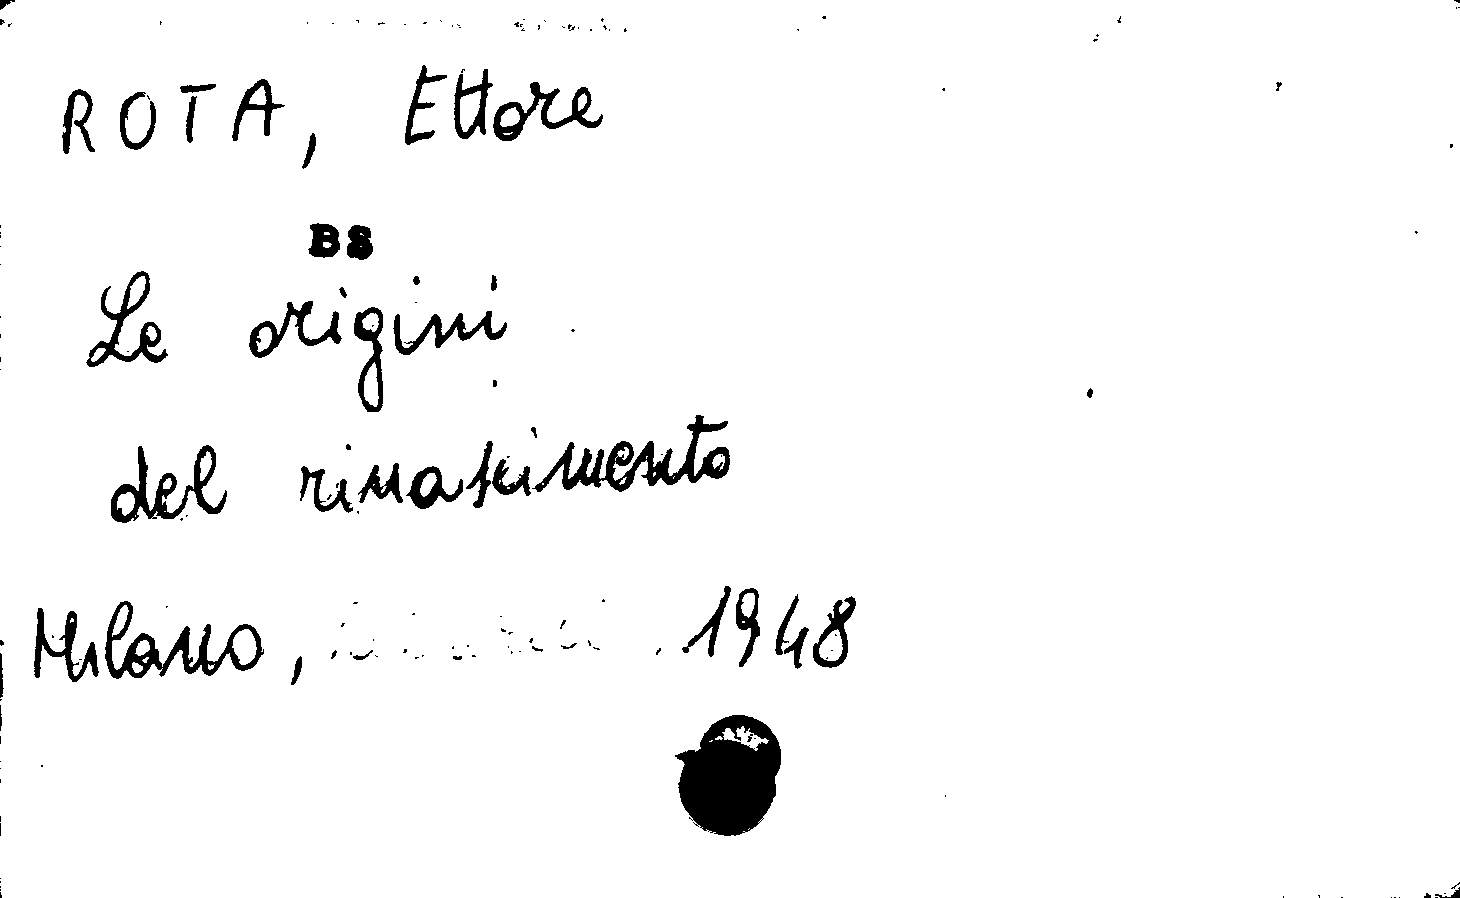 ROTA, Ettore
BS
Le origini
del rinascimento
Milano, 1948